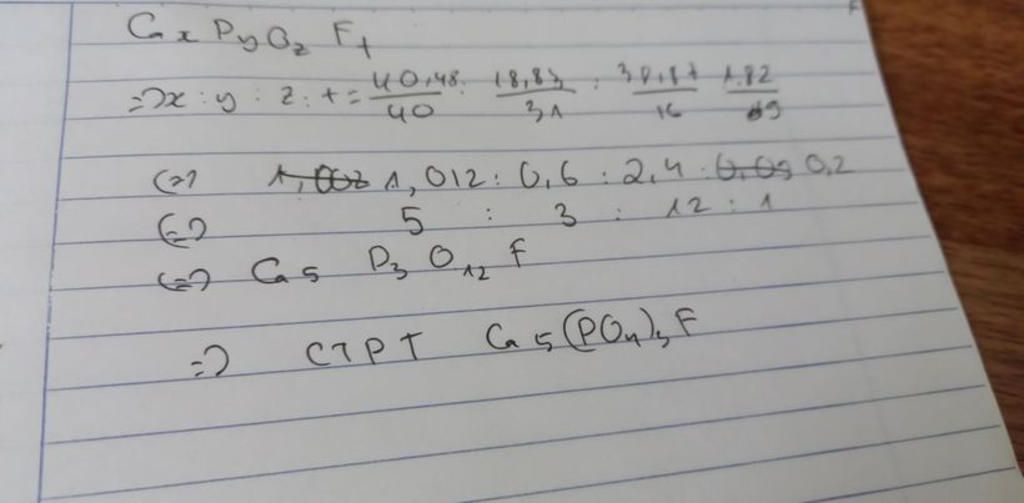 Ca x P y O z F t
=> x : y : z : t = 40,48/40 : 18,83/31 : 38,87/16 1.82/19
<=> 1,012 : 0,6 : 2,4 : 0,2
<=> 5 : 3 : 12 : 1
<=> Ca5 P3 O12 F
=> CTPT Ca5(PO4)3F